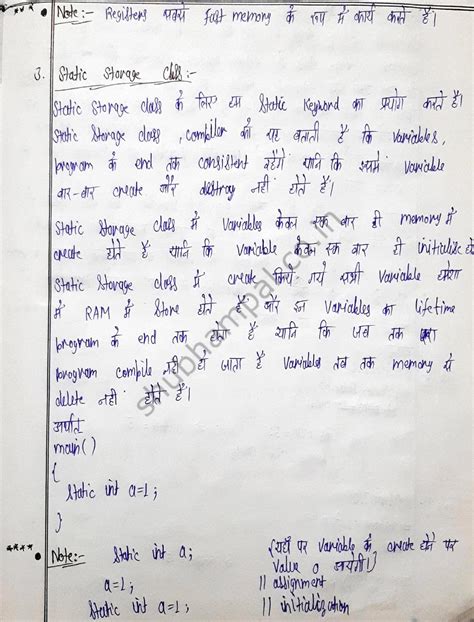 Note:- Registers सबसे fast memory के रूप में कार्य करते हैं।
3. Static Storage Class:-
Static Storage class के लिए हम Static Keyword का प्रयोग करते हैं।
Static Storage class, compiler को यह बताती है कि variables,
program के end तक consistent रहेंगे यानि कि इसमें variable
बार-बार create और distroy नहीं होते हैं।
Static Storage Class में, variables केवल एक बार ही memory में
create होते हैं यानि कि variable केवल एक बार ही initialize होते
Static Storage class में create किये गये सभी variable हमेशा
में RAM में Store होते हैं और इन variables का lifetime
program के end तक होते हैं यानि कि जब तक पूरा
program compile नहीं हो जाता है variables तब तक memory से
delete नहीं होते हैं।
अर्थात
main()
{
Static int a=1;
}
Note:- Static int a; {यहाँ पर variable के create होने पर
value 0 जायेगी।}
a=1; // assignment
Static int a=1; // initialization
shubhampal.co.in